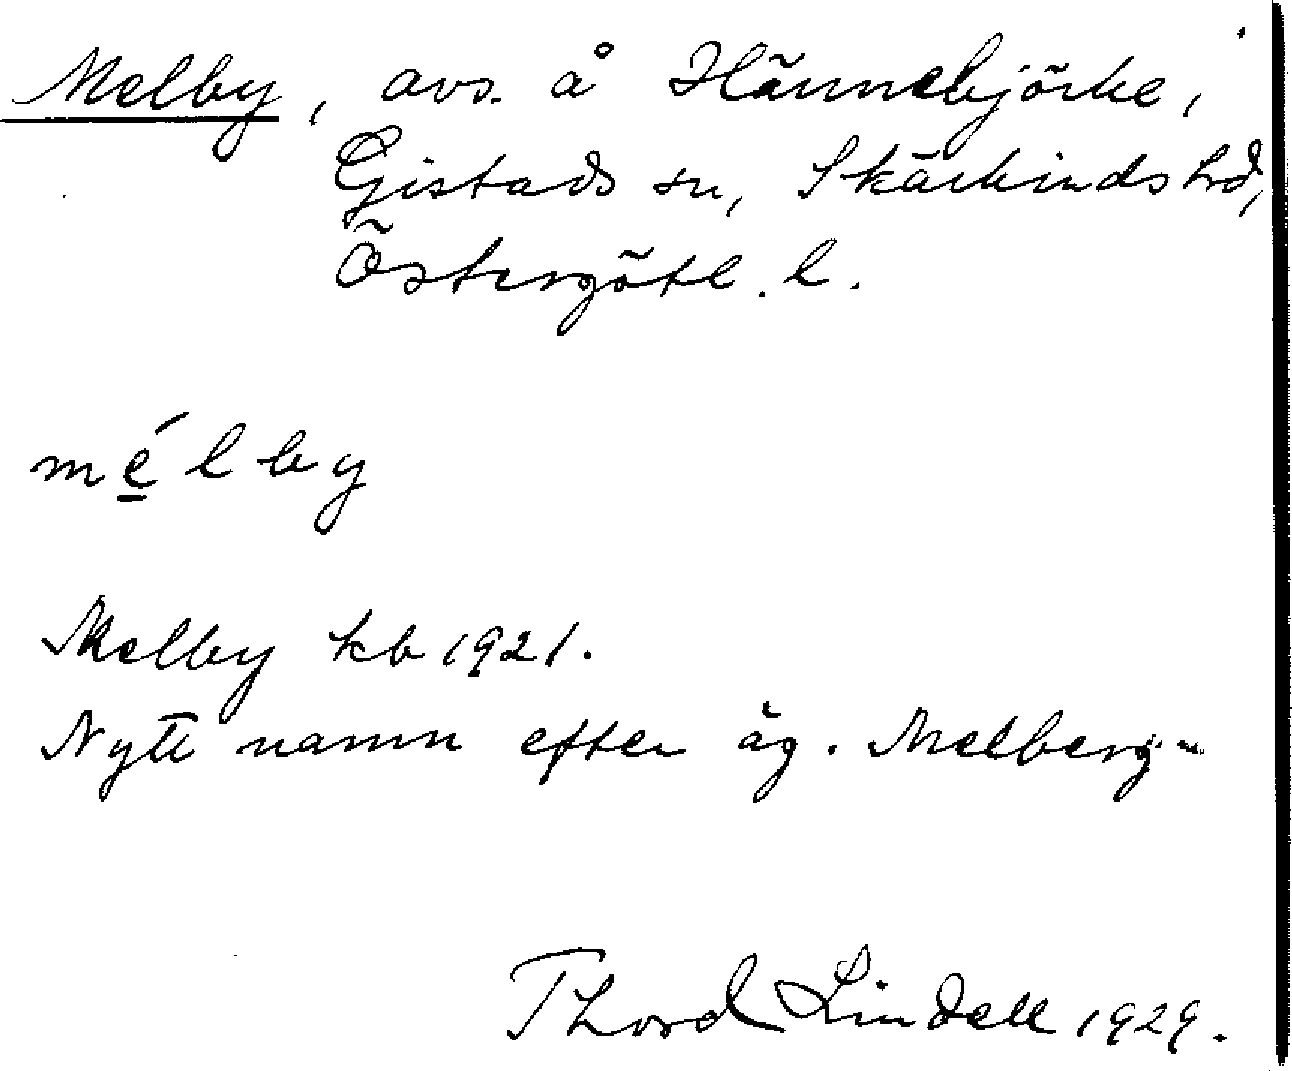 Melby, avs. å Hännebjörke,
Gistads sn, Skärkinds hd,
Östergötl. l.
mélby
Melby kb 1921.
Nytt namn efter äg. Melberg.
Thord Lindell 1929.